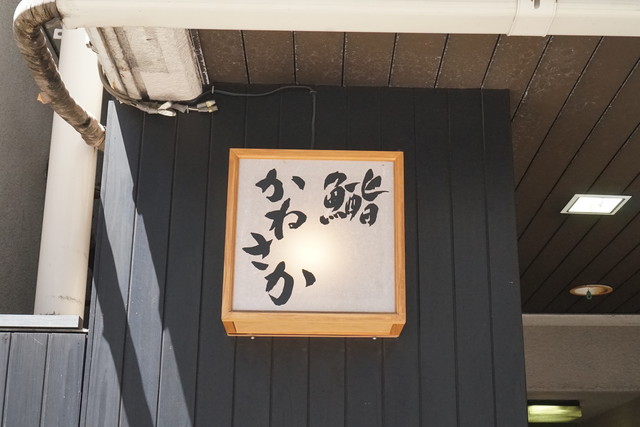 鮨
かねさか